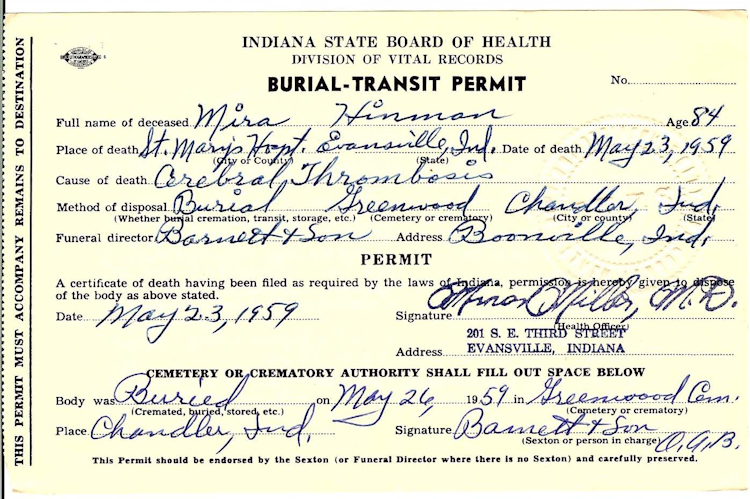 INDIANA STATE BOARD OF HEALTH
DIVISION OF VITAL RECORDS
BURIAL-TRANSIT PERMIT
No.
Full name of deceased Mira Hinman Age 84
Place of death St. Mary's Hospt. Evansville, Ind. Date of death May 23, 1959
(City or County) (State)
Cause of death Cerebral Thrombosis
Method of disposal Burial Greenwood Chandler, Ind.
(Whether burial cremation, transit, storage, etc.) (Cemetery or crematory) (City or county) (State)
Funeral director Barnett & Son Address Boonville, Ind.
PERMIT
A certificate of death having been filed as required by the laws of Indiana, permission is hereby given to dispose
of the body as above stated.
Date May 23, 1959 Signature Miller, M.D.
(Health Officer)
201 S. E. THIRD STREET
Address EVANSVILLE, INDIANA
CEMETERY OR CREMATORY AUTHORITY SHALL FILL OUT SPACE BELOW
Body was Buried on May 26, 1959 in Greenwood Cem.
(Cremated, buried, stored, etc.) (Cemetery or crematory)
Place Chandler, Ind. Signature Barnett & Son
(Sexton or person in charge) O.G.B.
This Permit should be endorsed by the Sexton (or Funeral Director where there is no Sexton) and carefully preserved.
THIS PERMIT MUST ACCOMPANY REMAINS TO DESTINATION